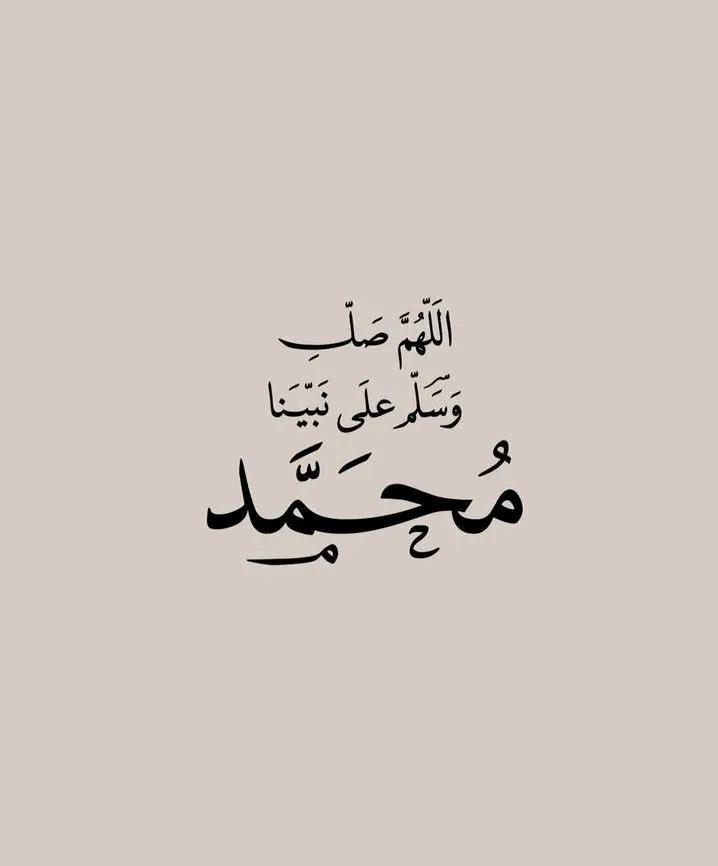 اللَّهُمَّ صَلِّ
وَسَلِّم علَى نَبيِّنَا
مُحمَّد